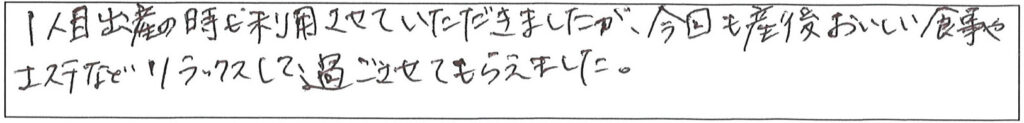 1人目出産の時も利用させていただきましたが、今回も産後おいしい食事や
エステなどリラックスして、過ごさせてもらえました。